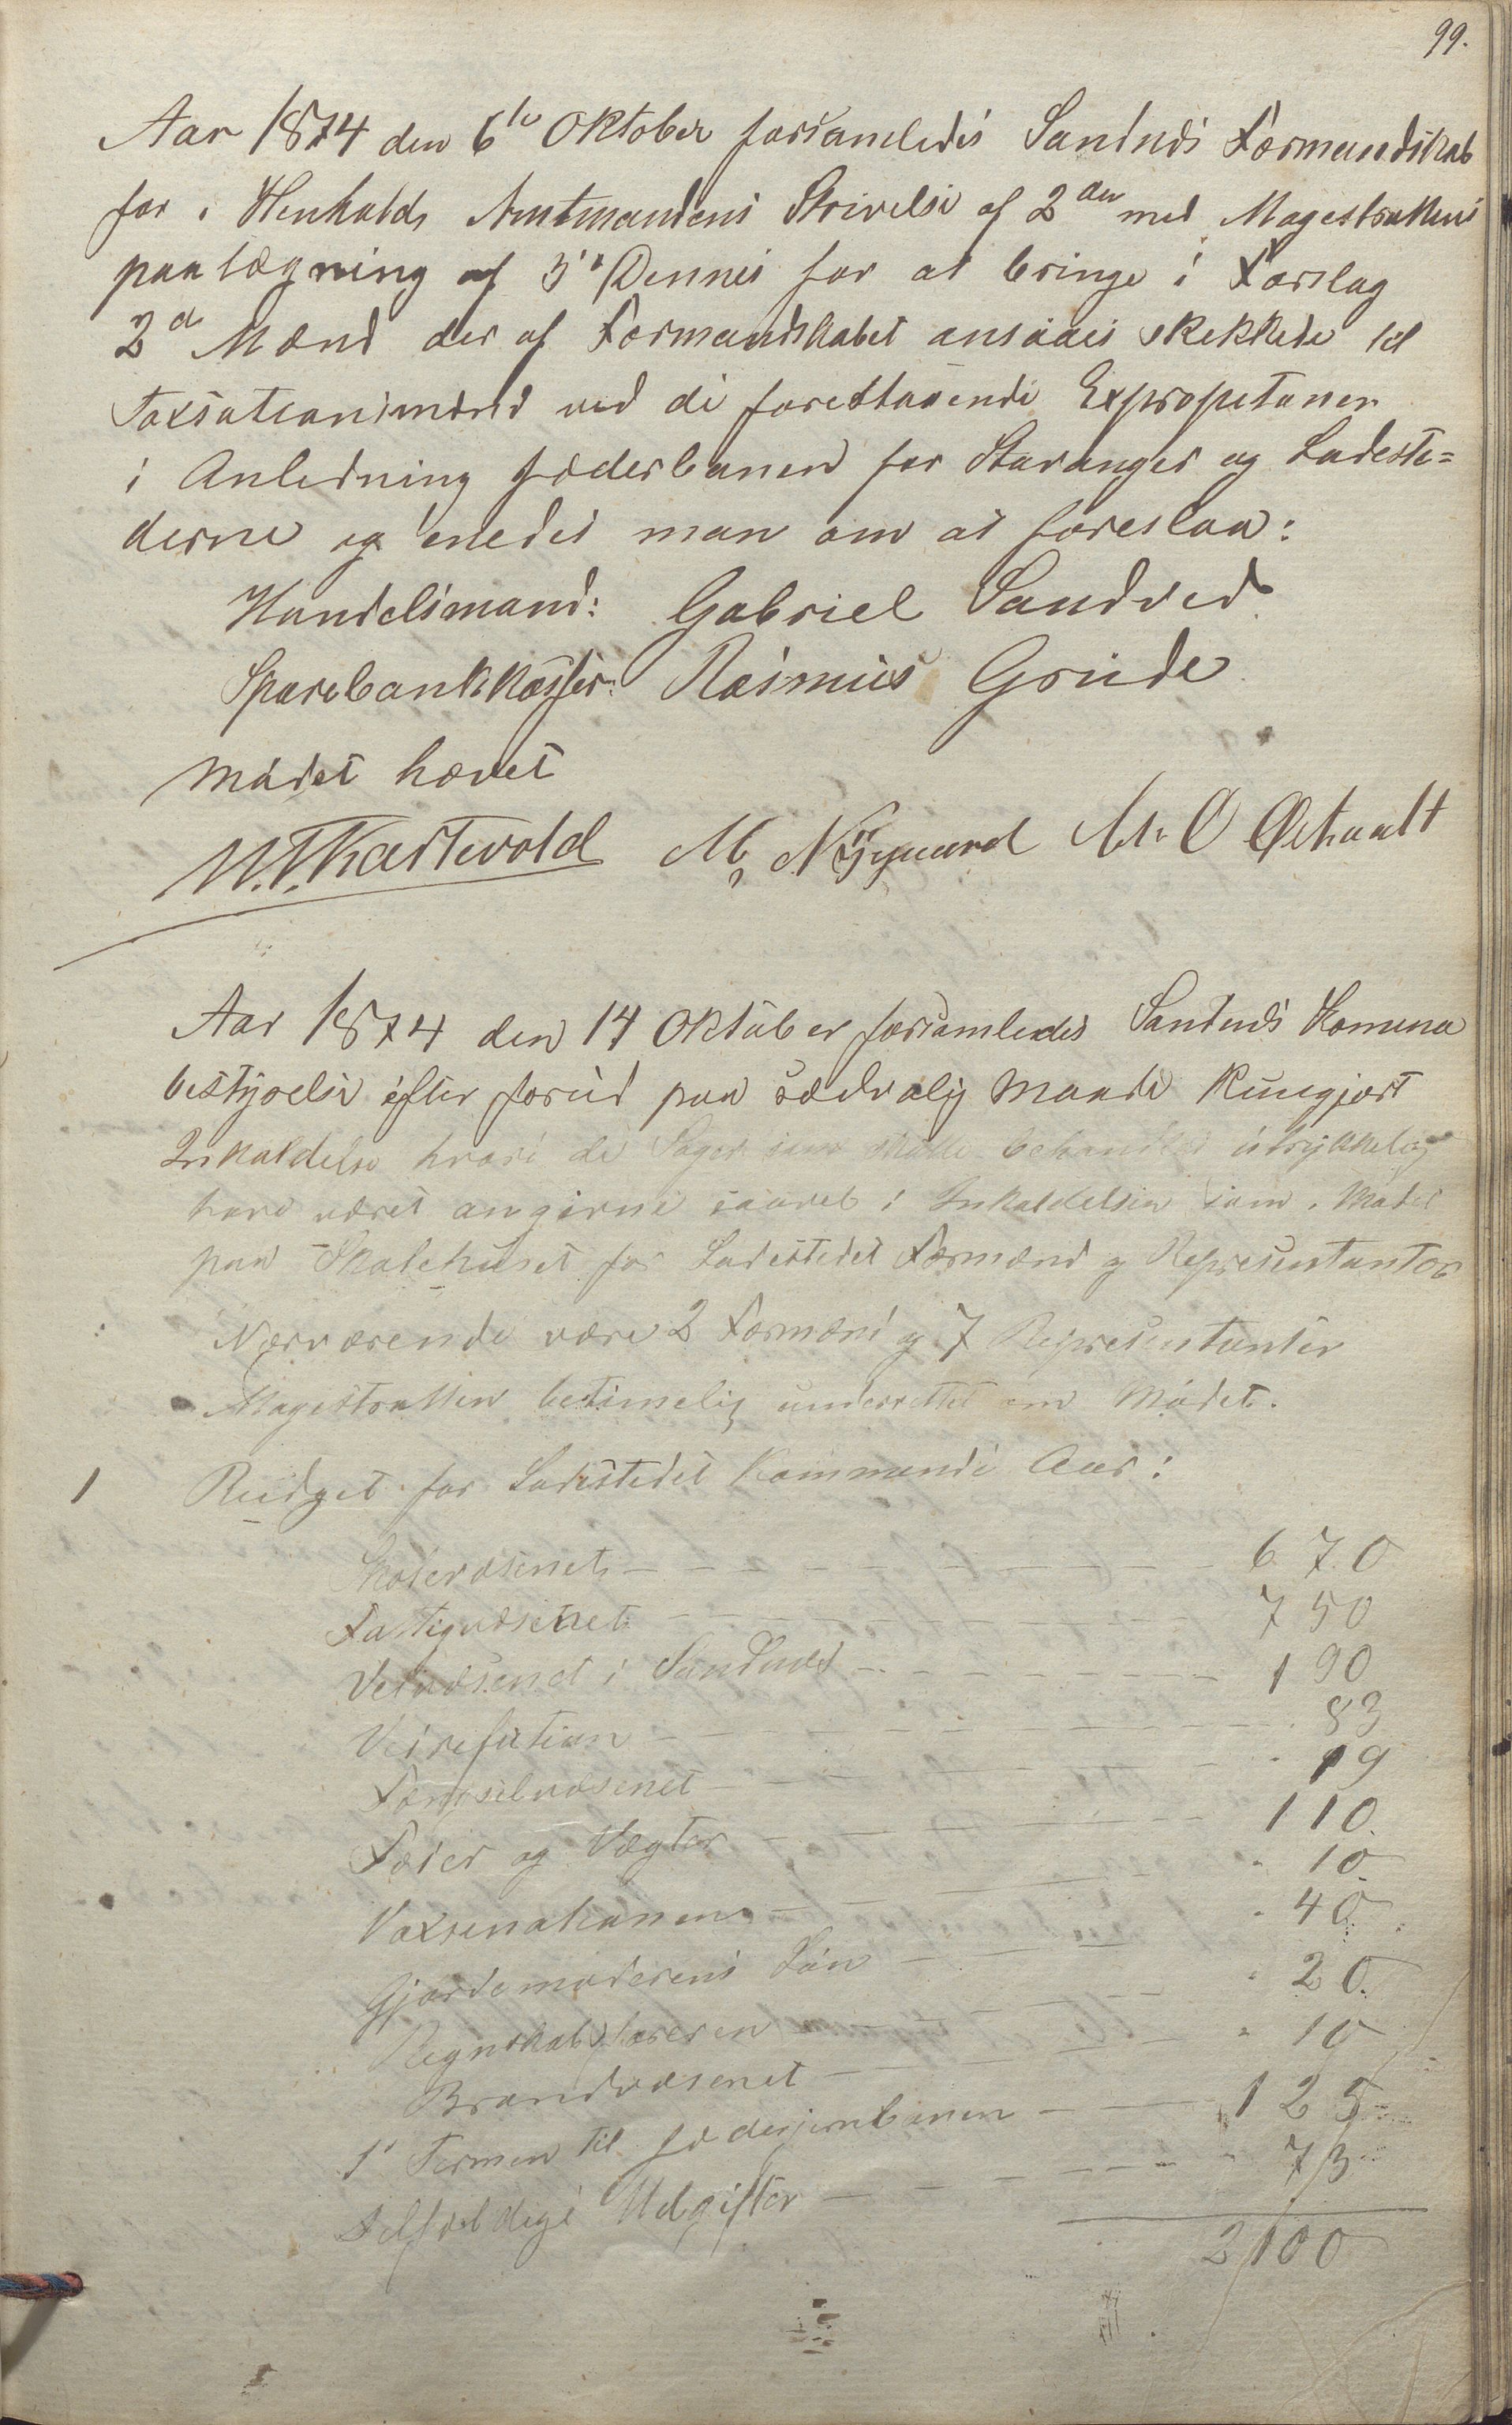 99.
Aar 1874 den 6te Oktober forsamledes Sandnds Formandskab
for i Henhold Amtmandens Skrivelse af 2den med Magestrattens
paategning af 5te Dennes for at bringe i Forslag
2de Mænd der af Formandskabet ansaaes skekkede til
Taxsationsmænd ved de forestaaende Expropetaner
i Anledning Jæderbanen for Stavanger og Ladeste=
derne og enedes man om at foreslaa:
Handelsmand: Gabriel Sandved
Sparebankkasser: Rasmus Grude
Mødet hævet
M. Nygaard
Aar 1874 den 14 Oktober forsamledes Sandnds Komune
bestyrelse efter forud paa sædvalig Maade Kungjort
Inkaldelse hvori de Sager som skulle behandles udtrykkelig
have været angivne saavel i Inkaldelsen som i Mødet
paa Skolehuset for Ladestedet Formænd og Representanter
Nærværende være 2 Formænd og 7 Representanter
Magestratten betimelig underrettet om Mødet.
1 Budget for Ladestedet Kommende Aar:
Skolevæsenet 670
Fattigvæsenet 750
Veivæsenet i Sandnæs 190
Veirefution 83
Fængselvæsenet 19
Feier og Vægter 110
Vaxsinationen 10
Gjordemoderens Løn 40
Regnskabsføreren 20
Brandvæsenet 10
1ste Termen til Jæderjernbanen 125
Telfældige Udgifter 73
2100